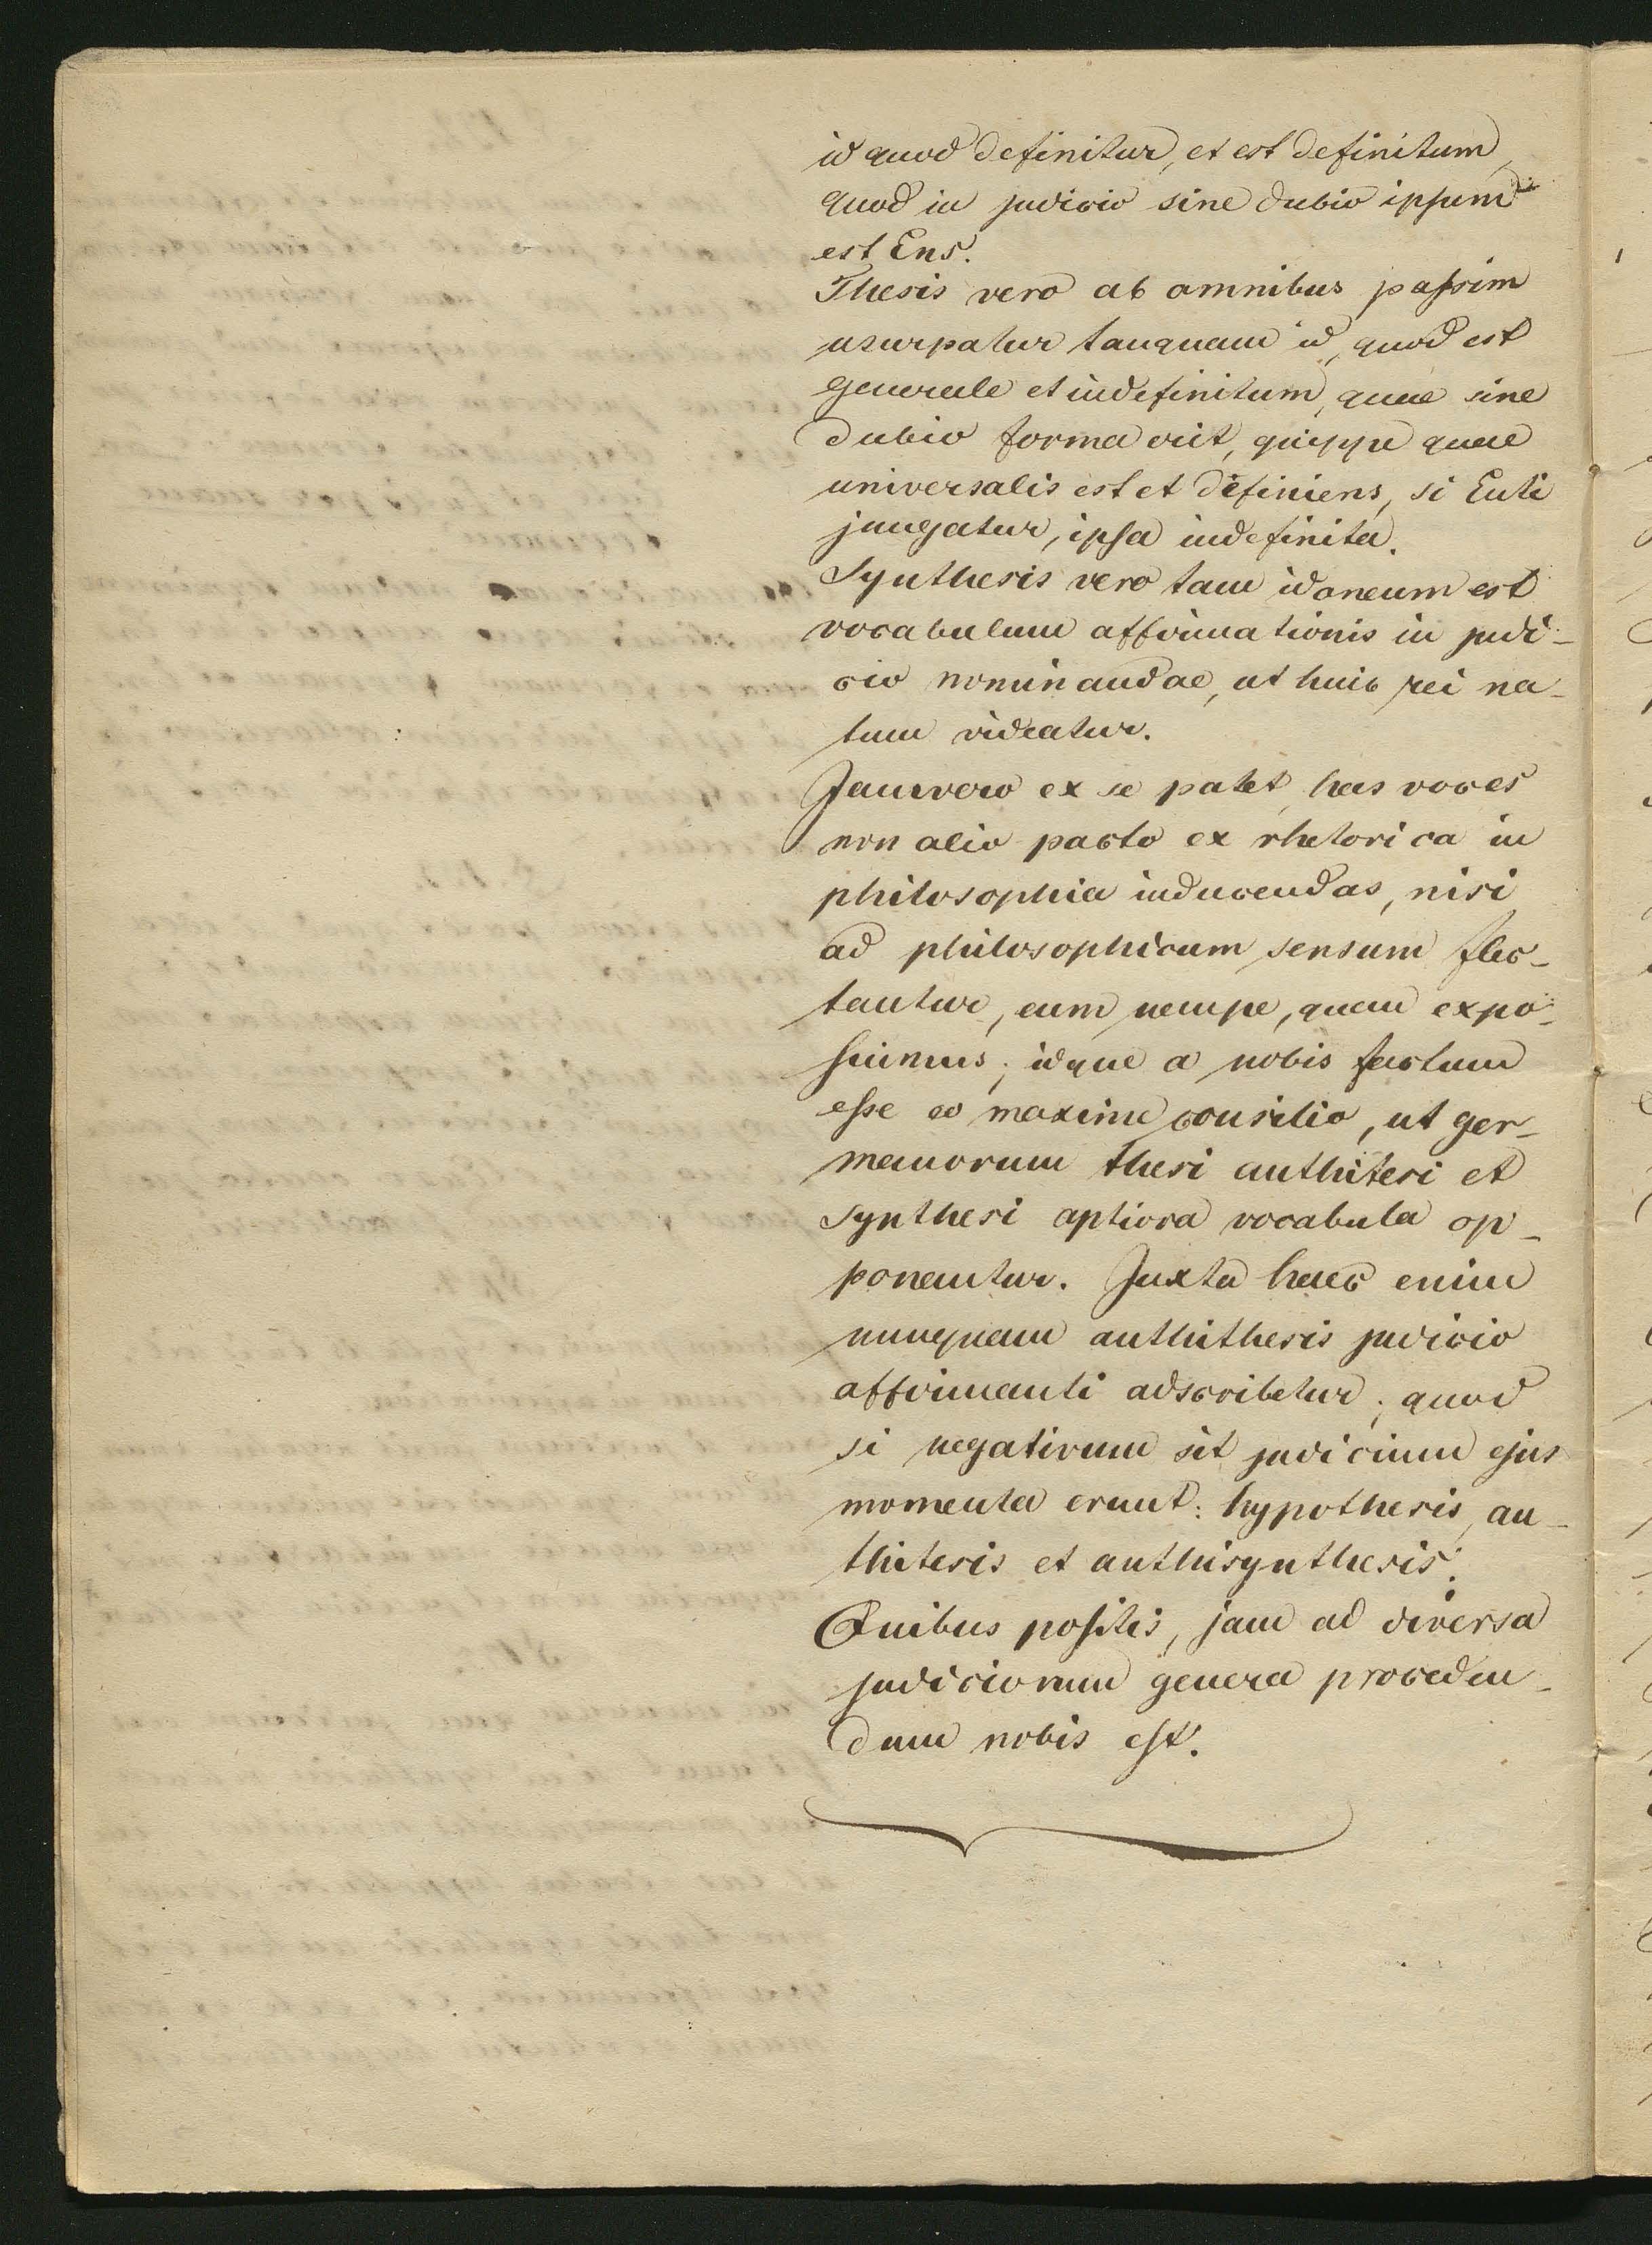 id quod definitur, et est definitum,
quod in judicio sine dubio ipsum
est Ens.
Thesis vero ab omnibus passim
usurpatur tanquam id, quod est
generale et indefinitum, quae sine
dubio forma erit, quippe quae
universalis est et definiens, si Enti
jungatur, ipsa indefinita.
Synthesis vero tam idoneum est
vocabulum affirmationis in judi-
cio nominandae, ut huic rei na-
tum videatur.
Jamvero ex se patet, has voces
non alio pacto ex rhetorica in
philosophia inducendas, nisi
ad philosophicum sensum flec-
tantur, eum nempe, quem expo-
suimus; idque a nobis factum
esse eo maxime consilio, ut ger-
manorum thesi anthitesi et
synthesi aptiora vocabula op-
ponantur. Juxta haec enim
nunquam anthithesis judicio
affirmanti adscribetur; quod
si negativum sit judicium ejus
momenta erunt: hypothesis, an-
thitesis et anthisynthesis.
Quibus positis, jam ad diversa
judiciorum genera proceden-
dum nobis est.